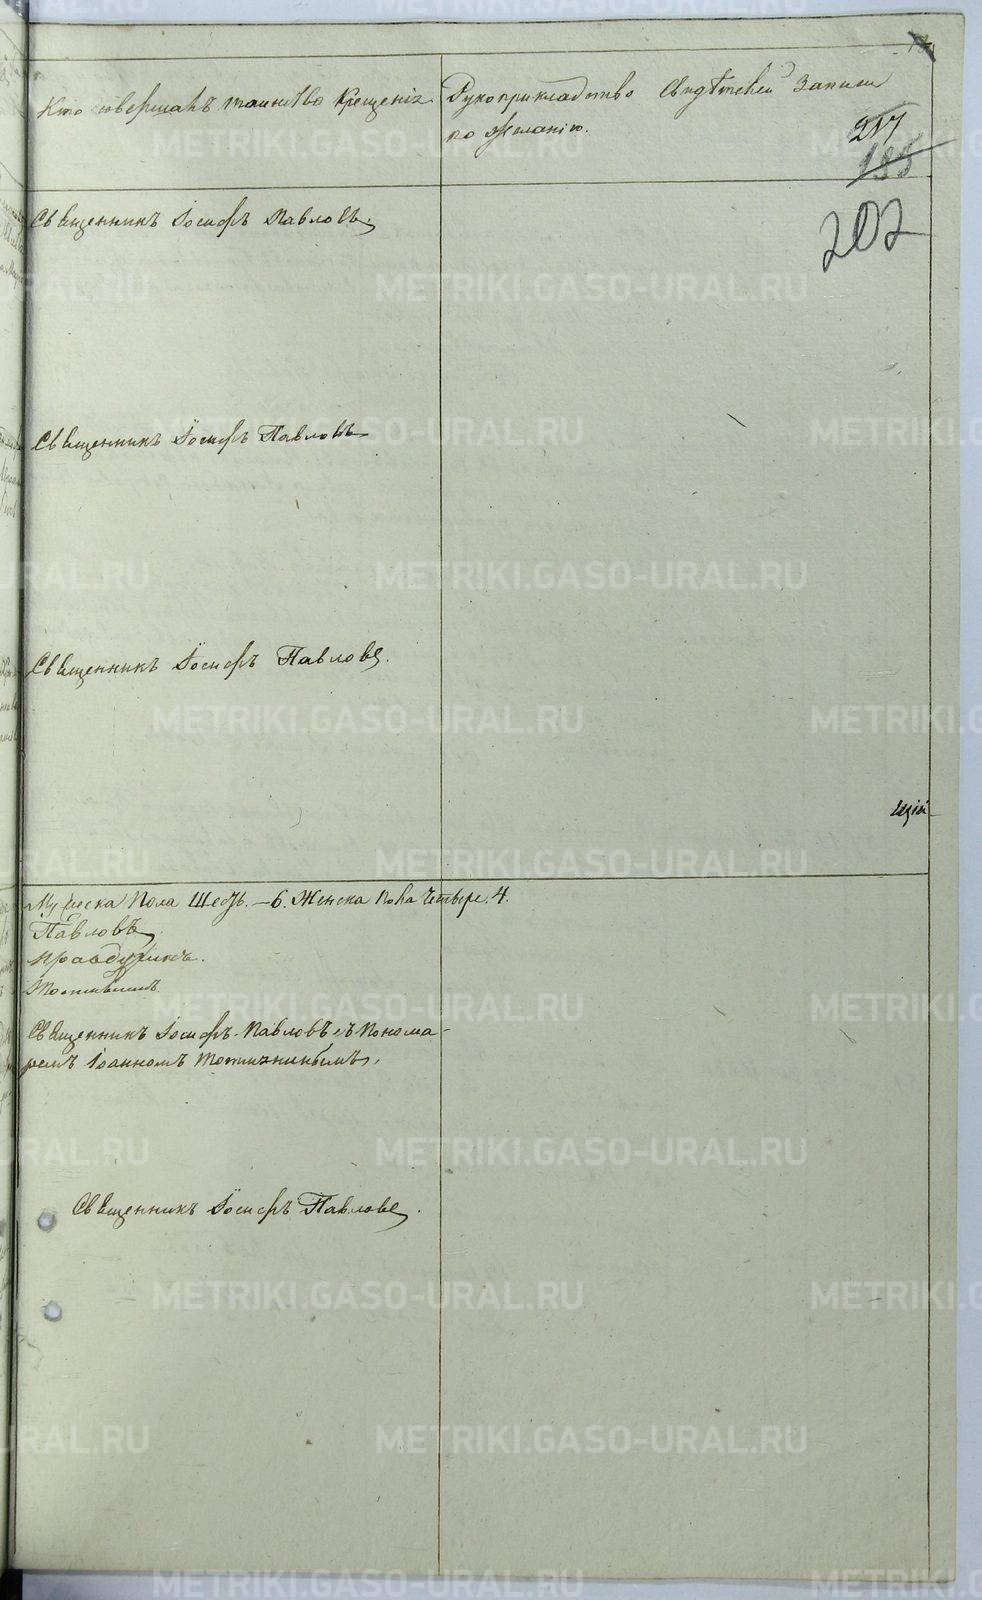 Кто совершалъ таинство Крещенія
Рукоприкладство Свидѣтелей Записи
по желанію.
217
185
202
Священникъ Іосифъ Павловъ.
Священникъ Іосифъ Павловъ
Священникъ Іосифъ Павловъ.
щій
Мужеска Пола Шесть. – 6. Женска Пола Четыре. 4.
Павловъ
Священникъ Іосифъ Павловъ съ Понома-
ремъ Іоанномъ
Священникъ Іосифъ Павловъ.
METRIKI.GASO-URAL.RU